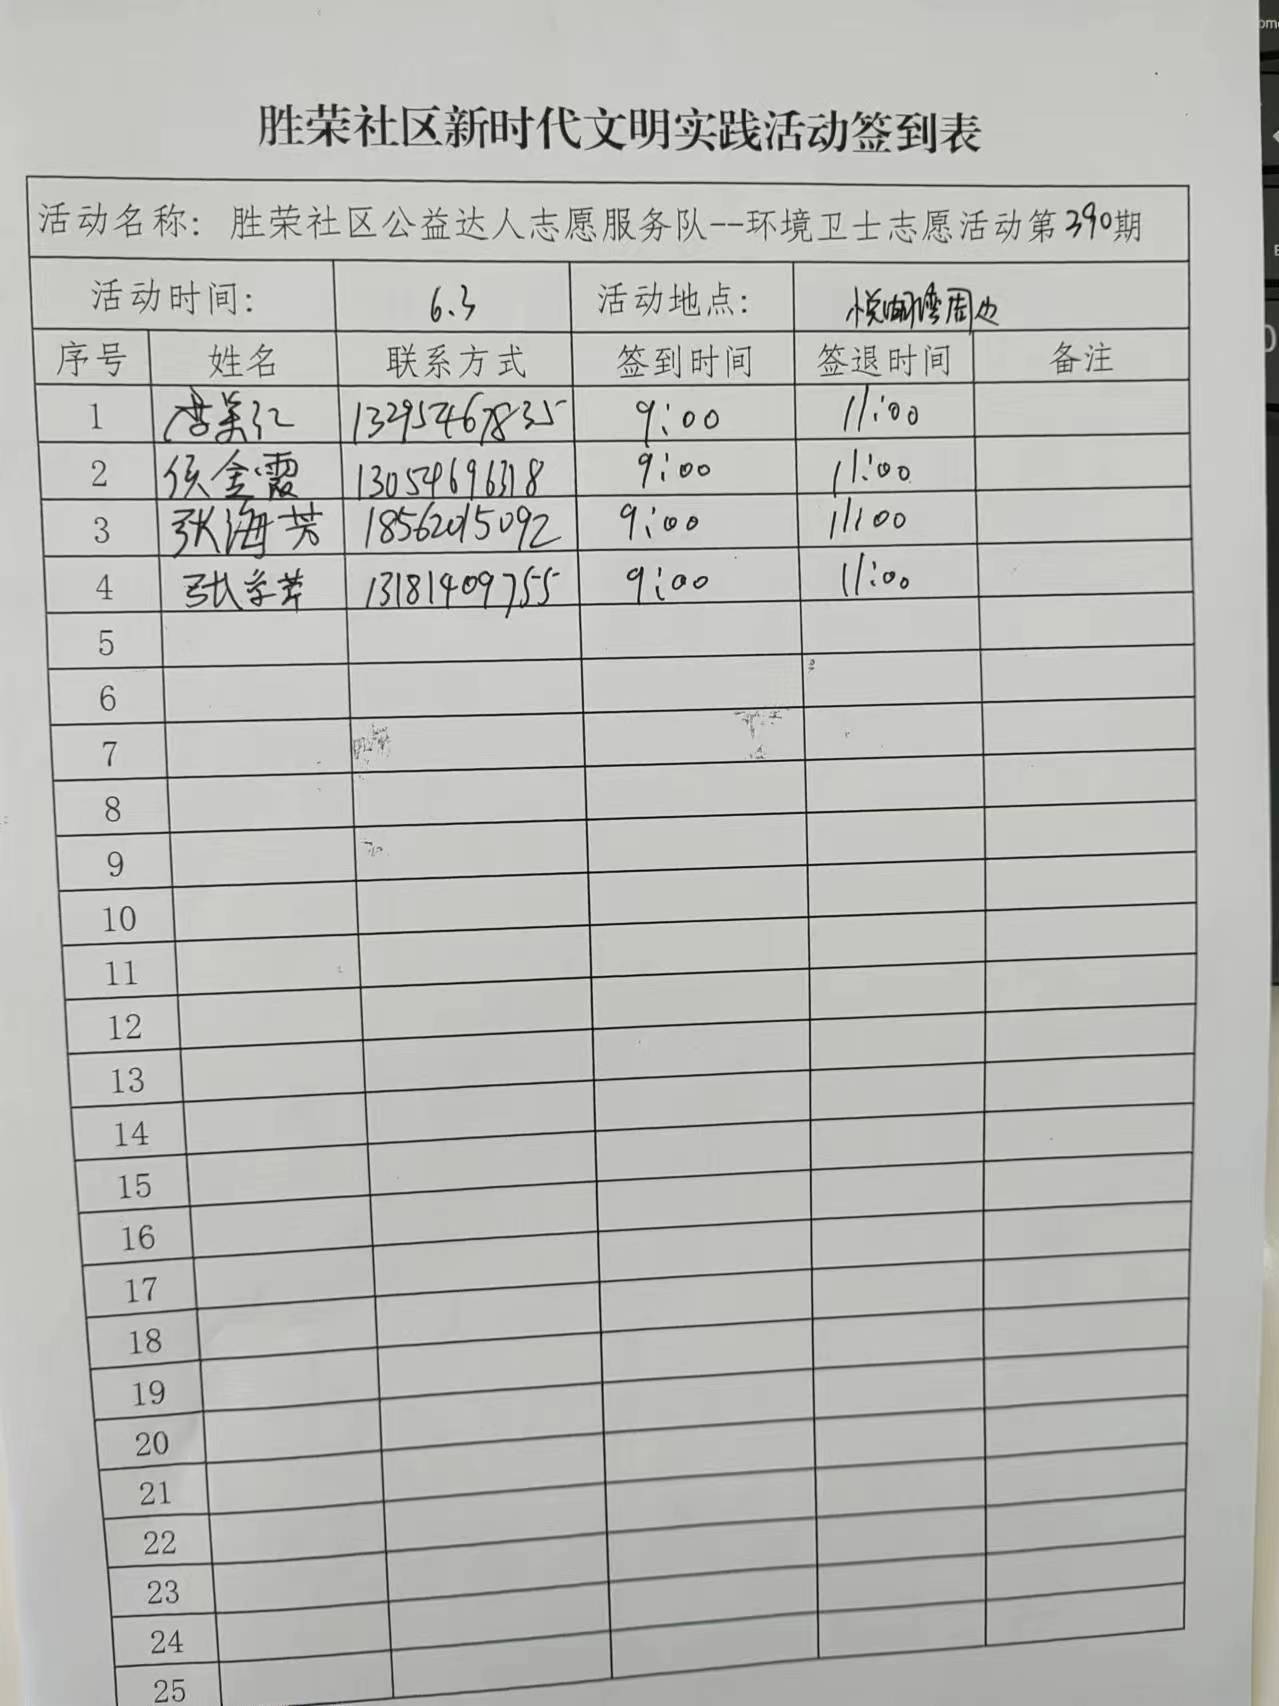 胜荣社区新时代文明实践活动签到表
活动名称：胜荣社区公益达人志愿服务队--环境卫士志愿活动第390期
活动时间： 6.3 活动地点： 悦湖湾周边
序号 姓名 联系方式 签到时间 签退时间 备注
1 13295467835 9:00 11:00
2 侯金霞 13054696318 9:00 11:00
3 张海芳 18562015092 9:00 11:00
4 13181409755 9:00 11:00
5
6
7
8
9
10
11
12
13
14
15
16
17
18
19
20
21
22
23
24
25